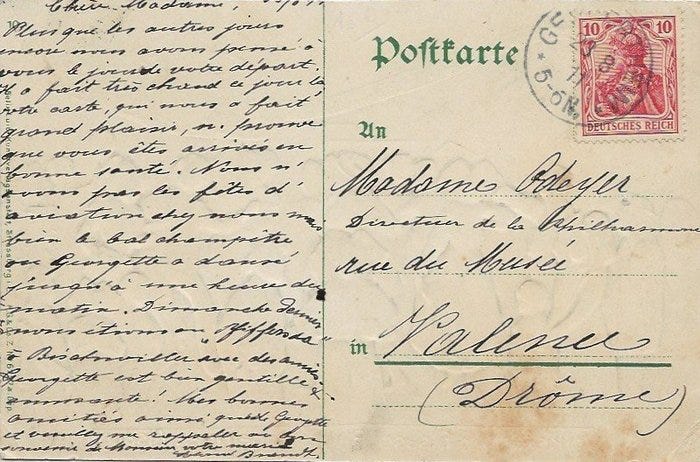 Chère Madame,
Plus que les autres jours
encore nous avons pensé à
vous le jour de votre départ.
Il a fait très chaud ce jour là
votre carte, qui nous a fait
grand plaisir, n. prouve
que vous êtes arrivés en
bonne santé. Nous n'
avons pas les fêtes d'
aviation chez nous mais
bien le bal champêtre
ou Georgette a dansé
jusqu'à une heure du
matin. Dimanche dernier
nous étions au "Pfifferda"
à Bischwiller avec des amies.
Georgette est bien gentille &
amusante! Mes bonnes
amitiés ainsi que de Georgette
et veuillez me rappeler au bon
souvenir de Monsieur votre mari
Postkarte
10 10
DEUTSCHES REICH
23 8 11
5-6N.
An
Madame Odeyer
Directeur de la Philharmonie
rue du Musée
in Valence
(Drôme)